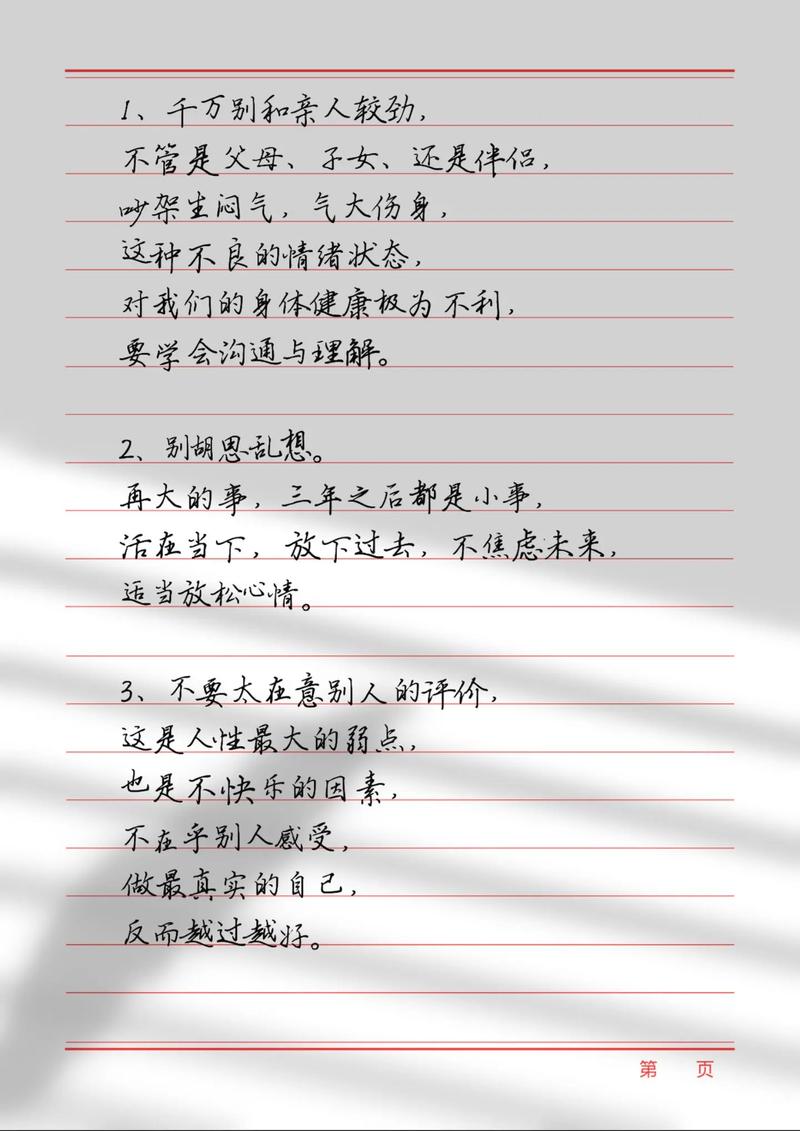 1、千万别和亲人较劲，
不管是父母、子女、还是伴侣，
吵架生闷气，气大伤身，
这种不良的情绪状态，
对我们的身体健康极为不利，
要学会沟通与理解。
2、别胡思乱想。
再大的事，三年之后都是小事，
活在当下，放下过去，不焦虑未来，
适当放松心情。
3、不要太在意别人的评价，
这是人性最大的弱点，
也是不快乐的因素，
不在乎别人感受，
做最真实的自己，
反而越过越好。
第 页